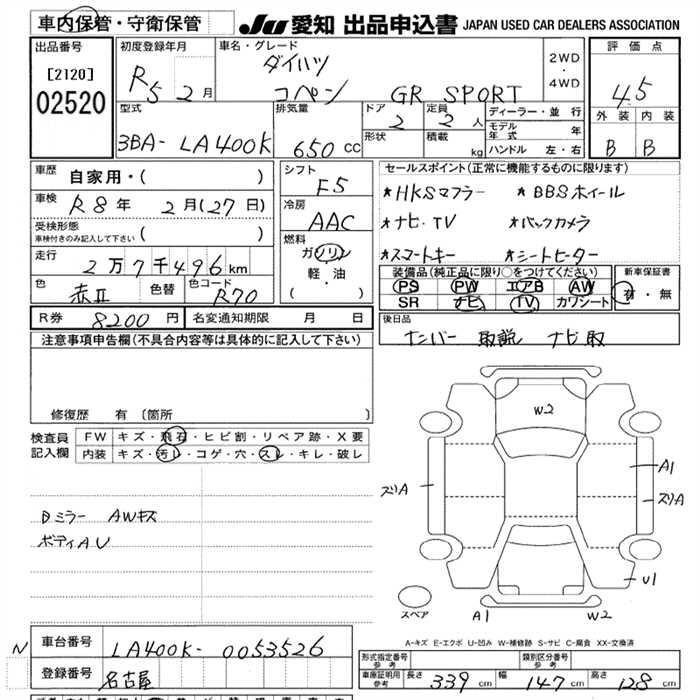 車内保管・守衛保管 JU 愛知 出品申込書 JAPAN USED CAR DEALERS ASSOCIATION
出品番号 [2120] 02520
初度登録年月 R5 2月
車名・グレード ダイハツ コペン GR SPORT
2WD・4WD
評価点 4.5
外装 B 内装 B
型式 3BA-LA400K
排気量 650 CC
ドア 2 形状
定員 2人 積載 kg
ディーラー・並行
モデル年式 年
ハンドル 左・右
車歴 自家用・( )
車検 R8年 2月(27日)
受検形態 車検付きのみ記入して下さい ( )
走行 2万7千496km
色 赤II 色替 色コード R70
シフト F5
冷房 AAC
燃料 ガソリン 軽・油 ( )
セールスポイント(正常に機能するものに限ります)
*HKSマフラー *BBSホイール
*ナビ・TV *バックカメラ
*スマートキー *シートヒーター
装備品(純正品に限り○をつけてください) 新車保証書
PS PW エアB AW 有・無
SR ナビ TV カワシート
R券 8200円 名変通知期限 月 日
後日品 ナンバー 取説 ナビ取
注意事項申告欄(不具合内容等は具体的に記入して下さい)
修復歴 有 〔箇所 〕
検査員記入欄 FW キズ・飛石・ヒビ割・リペア跡・X要
内装 キズ・汚レ・コゲ・穴・スレ・キレ・破レ
Bミラー AWキズ
ボディAU
W2
ズリA
A1
ズリA
U1
スペア A1 W2
A-キズ E-エクボ U-凹み W-補修跡 S-サビ C-腐食 XX-交換済
N 車台番号 LA400K-0053526
登録番号 名古屋
形式指定番号 参考 類別区分番号 参考
車庫証明用参考 長さ 339 cm 幅 147 cm 高さ 128 cm